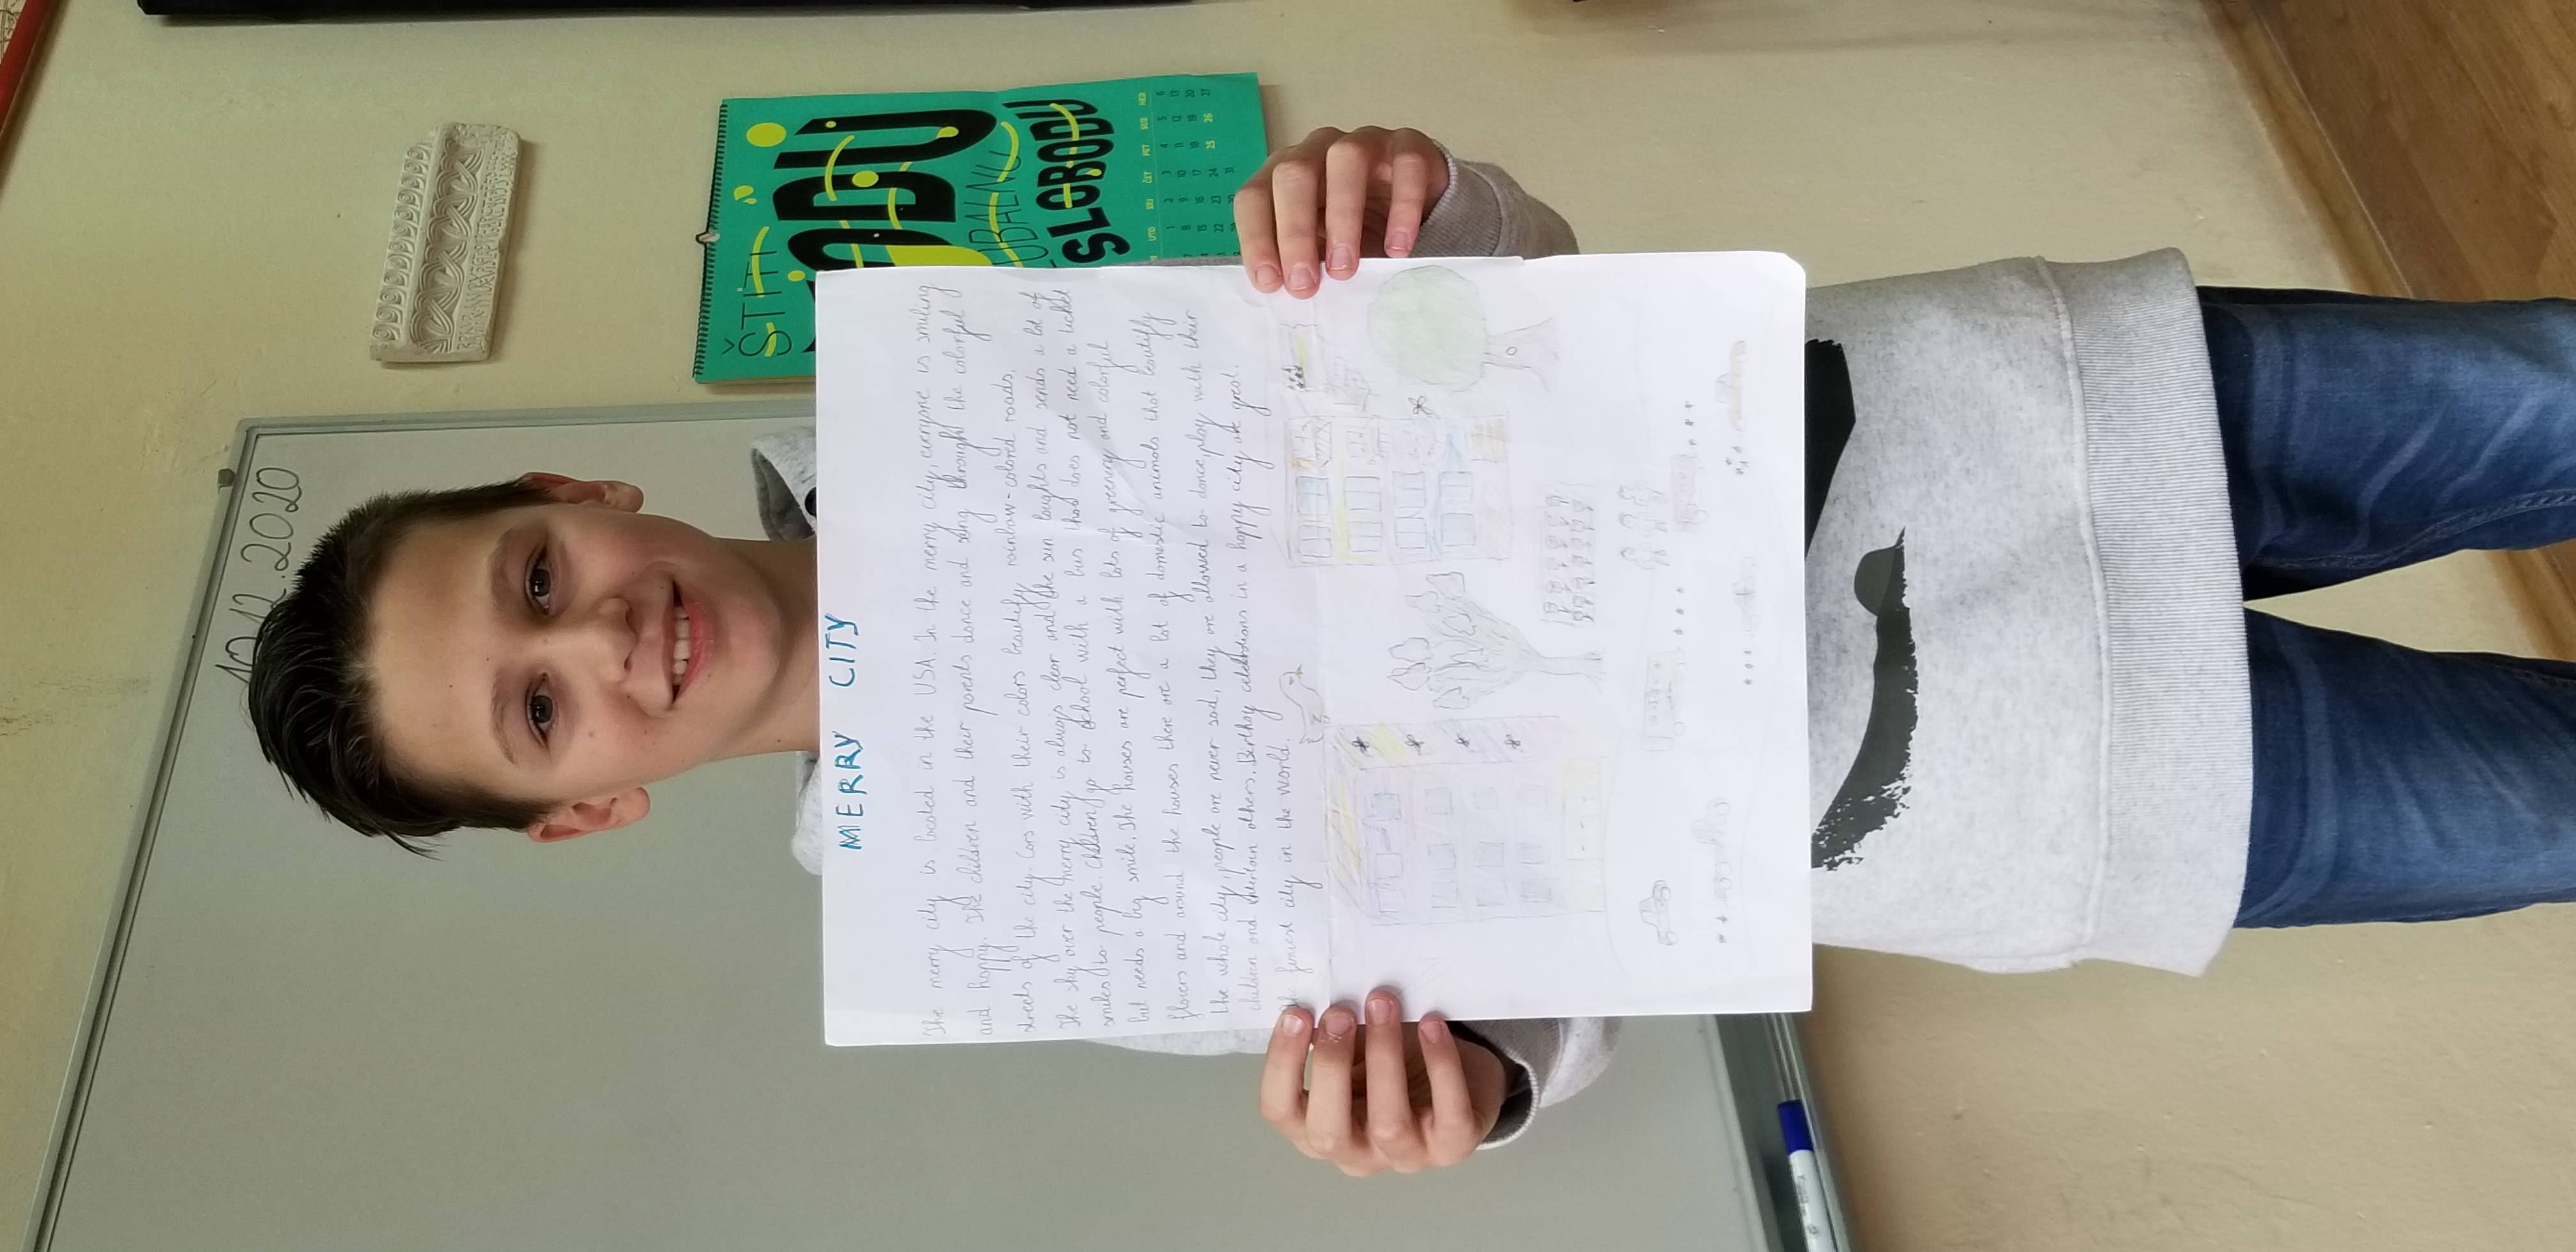 10.12.2020
ŠTITI
SLOBODU
UTO SRI ČET PET SUB NED
1 2 3 4 5 6
8 9 10 11 12 13
15 16 17 18 19 20
22 23 24 25 26 27
31
MERRY CITY
The merry city is located in the USA. In the merry city, everyone is smiling
and happy. The children and their parents dance and sing through the colorful
streets of the city. Cars with their colors beautify rainbow-colored roads.
The sky over the merry city is always clear and the sun laughts and sends a lot of
smiles to people. Children go to school with a bus that does not need a ticket
but needs a big smile. The houses are perfect with lots of greenery and colorful
flovers and around the houses there are a lot of domestic animals that beautify
the whole city, people are never sad, they are allowed to dance, play with their
children and entertain others. Birthay celebrations in a happy city are great.
the finest city in the world.